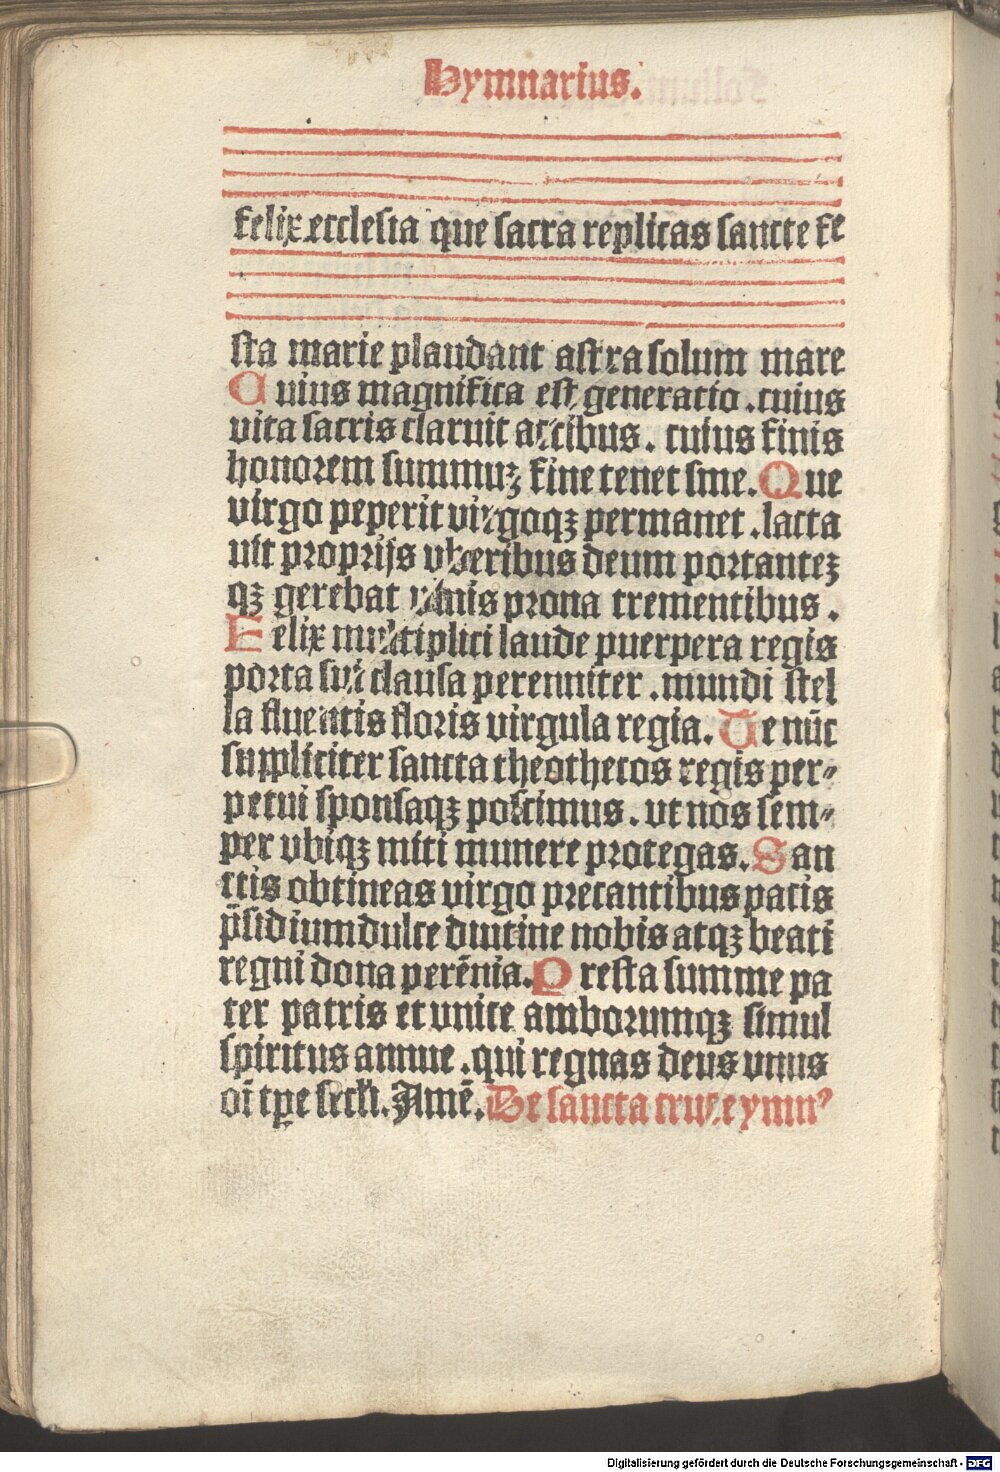 Hymnarius.
felix ecclesia que sacra replicas sancte fe
sta marie plaudant astra solum mare
Cuius magnifica est generatio .cuius
vita sacris claruit actibus. cuius finis
honorem summuz fine tenet sine. Que
virgo peperit virgoqz permanet .lacta
uit proprijs vberibus deum portantez
qz gerebat vlnis prona trementibus.
Felix multiplici laude puerpera regis
porta sui clausa perenniter .mundi stel
la fluentis floris virgula regia. Te nūc
suppliciter sancta theothecos regis per⸗
petui sponsaqz poscimus. vt nos sem⸗
per vbiqz miti munere protegas. San
ctis obtineas virgo precantibus pacis
p̄sidium dulce diutine nobis atqz beati
regni dona perēnia. Presta summe pa
ter patris et vnice amborumqz simul
spiritus annue .qui regnas deus vnus
oī tp̄e secli. Amē. De sancta cruce ymnꝰ
Digitalisierung gefördert durch die Deutsche Forschungsgemeinschaft - DFG